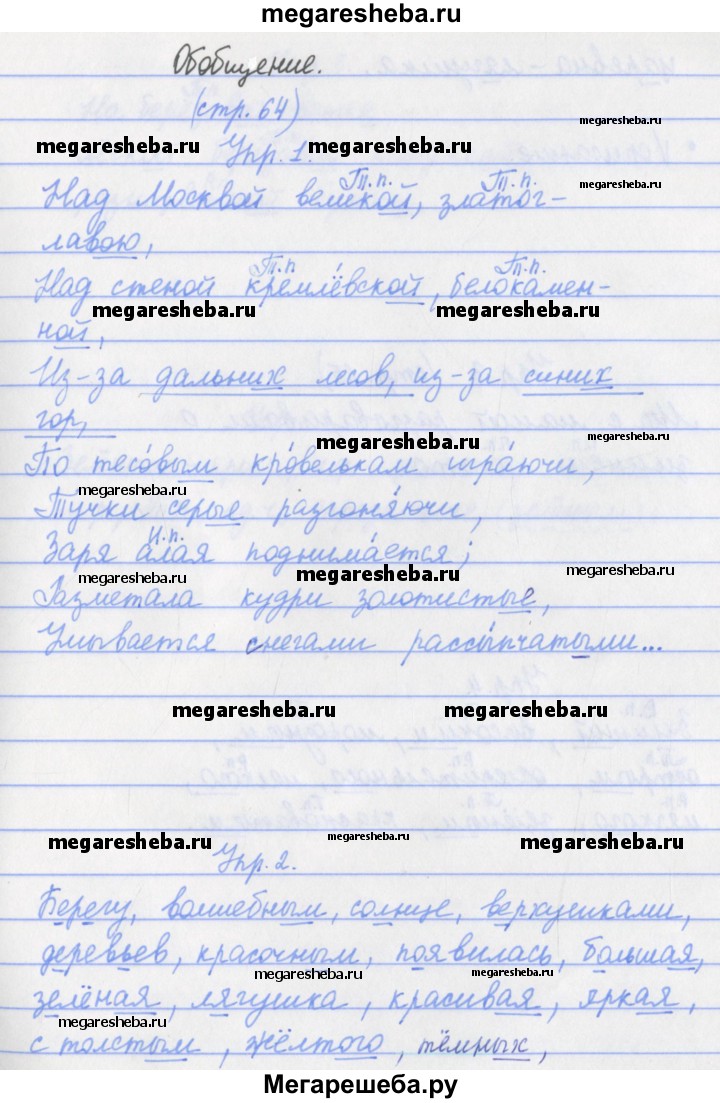 megaresheba.ru
Обобщение.
(стр. 64)
megaresheba.ru
megaresheba.ru Упр. 1. megaresheba.ru
Т.п. Т.п.
Над Москвой великой, златог-
лавою,
Т.п Т.п.
Над стеной кремлёвской, белокамен-
megaresheba.ru megaresheba.ru megaresheba.ru
ной,
Из-за дальних лесов, из-за синих
гор,
megaresheba.ru megaresheba.ru
По тесовым кровелькам играючи,
megaresheba.ru
Тучки серые разгоняючи,
И.п.
Заря алая поднимается;
megaresheba.ru megaresheba.ru megaresheba.ru
Разметала кудри золотистые,
Умывается снегами рассыпчатыми...
megaresheba.ru megaresheba.ru
megaresheba.ru megaresheba.ru megaresheba.ru
Упр. 2.
Берегу, волшебным, солнце, верхушками,
деревьев, красочным, появилась, большая,
megaresheba.ru megaresheba.ru
зелёная, лягушка, красивая, яркая,
megaresheba.ru megaresheba.ru
с толстым, жёлтого, тёмных,
Мегарешеба.ру